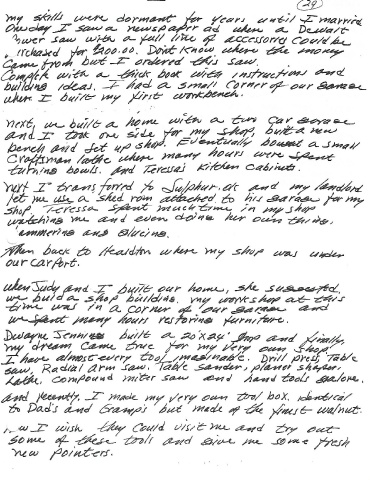 (29)
my skills were dormant for years until I married
One day I saw a newspaper ad where a Dewalt
ower saw with a full line of accessories could be
rchased for $200.00. Dont know where the money
came from but I ordered this saw.
Complete with a thick book with instructions and
building ideas. I had a small corner of our garage
where I built my first workbench.
Next, we built a home with a two car garage
and I took one side for my shop, built a new
bench and set up shop. Eventually bought a small
Craftsman lathe where many hours were spent
turning bowls. and Teresa's Kitchen Cabinets.
Next I transferred to Sulphur. ok and my landlord
let me use a shed room attached to his garage for my
shop Teressa spent much time in my shop
watching me and even doing her own thing.
ammering and glueing.
Then back to Healdton where my shop was under
our carport.
When Judy and I built our home, she suggested
we build a shop building. my workshop at this
time was in a corner of our garage and
we spent many hours restoring furniture.
Dewayne Jennings built a 20x24 shop and finally,
my dream came true for my very own shop
I have almost every tool imaginable. Drill press, Table
saw, Radial arm saw, Table sander, planer shaper,
Lathe, compound miter saw and hand tools galore.
and recently, I made my very own tool box. identical
to Dad's and Gramp's but made of the finest walnut.
w I wish they could visit me and try out
some of these tools and give me some fresh
new pointers.